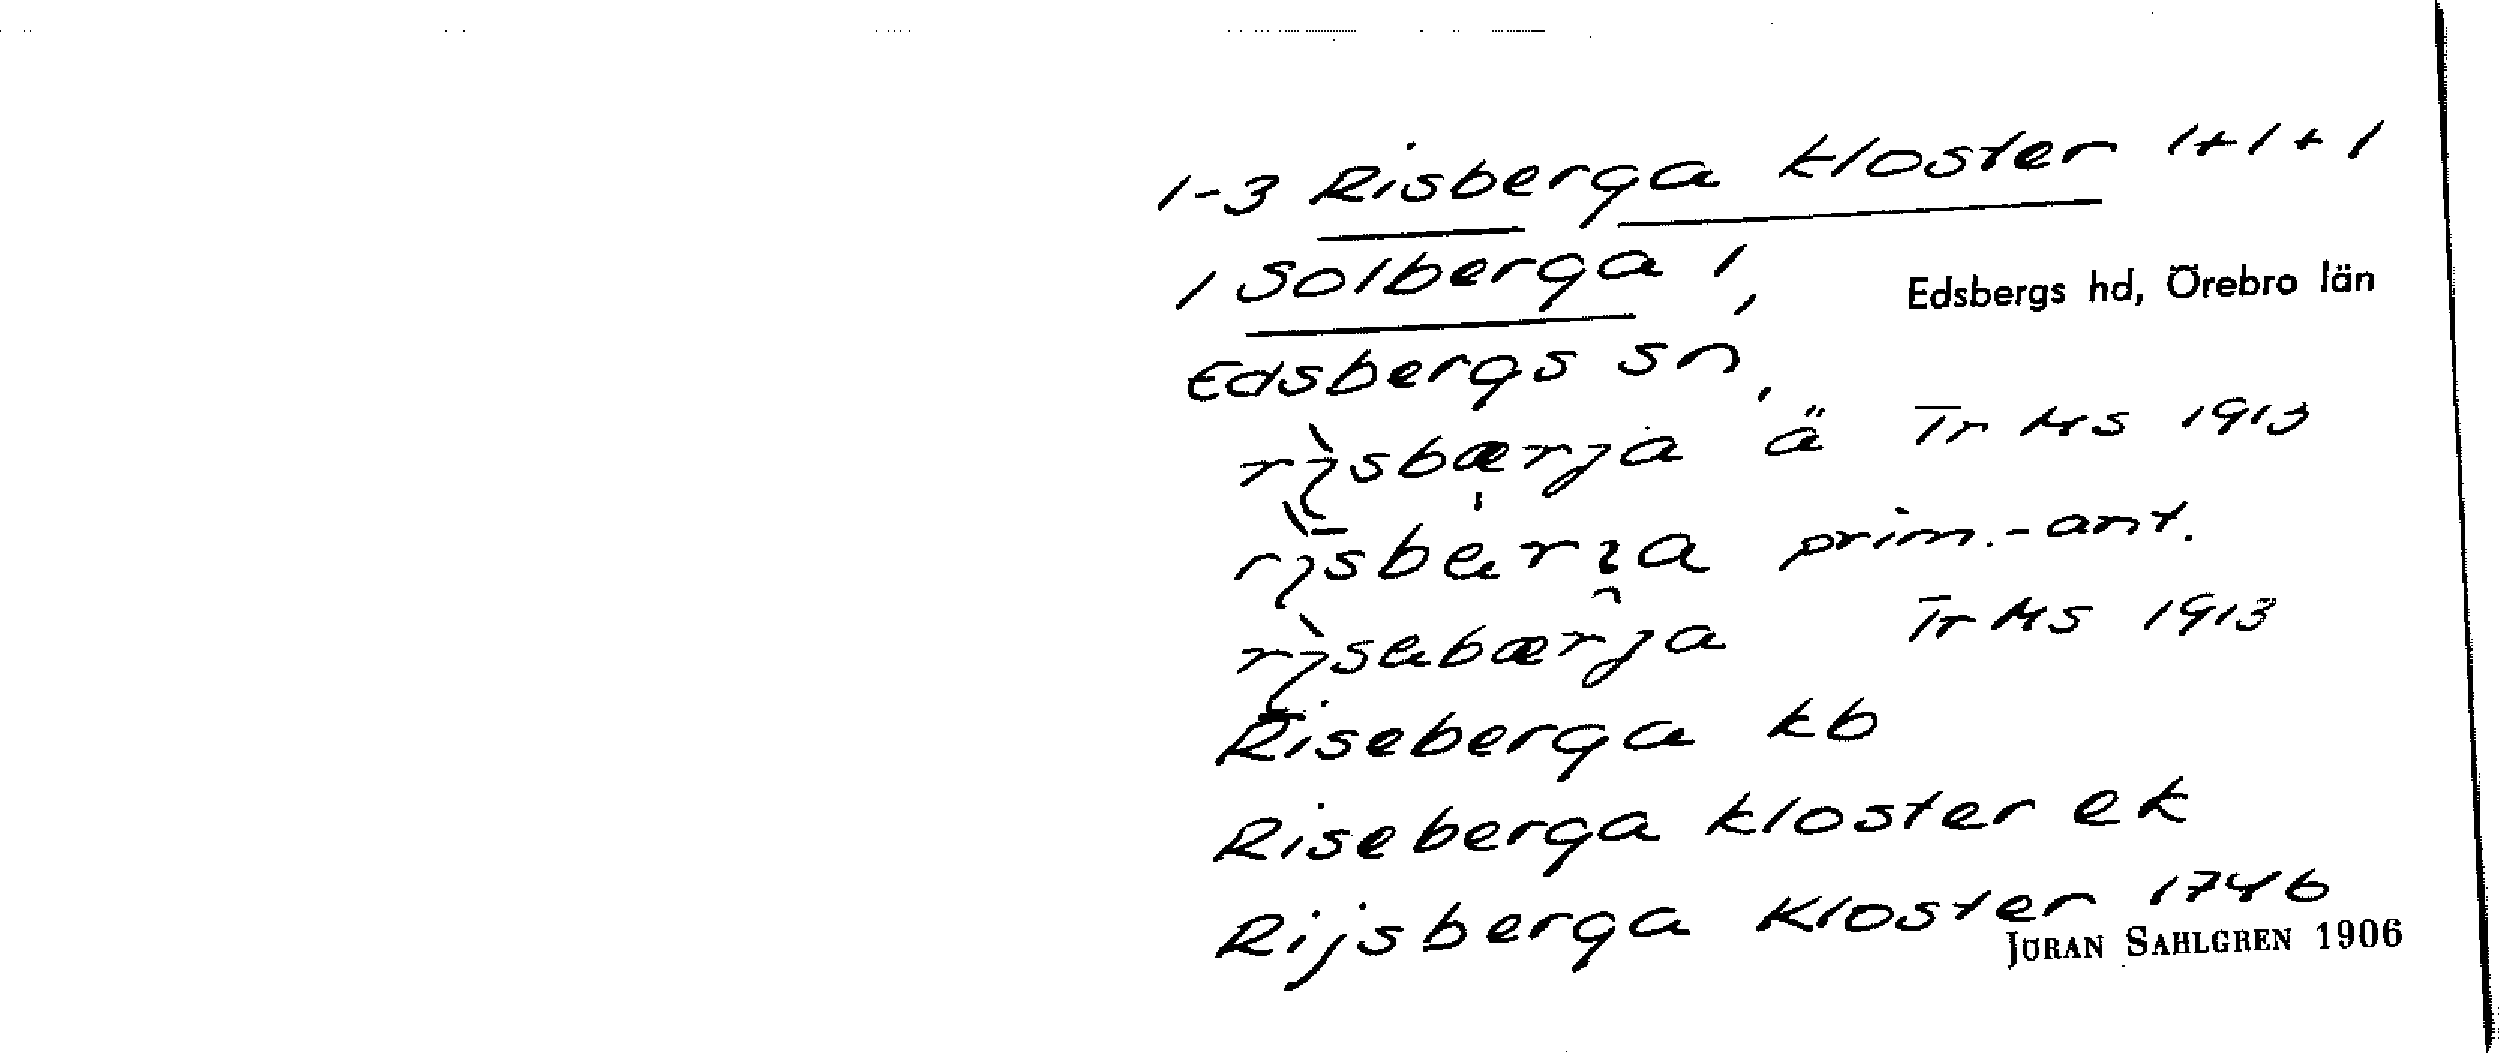 1-3 Risberga kloster 1+1+1
1 Solberga 1
Edsbergs hd, Örebro län
Edsbergs sn
rìsbærja ä Tr MS 1913
prim.-ant.
rìsebærja Tr MS 1913
Riseberga kb
Riseberga kloster ek
Rijsberga Kloster 1746
JÖRAN SAHLGREN 1906